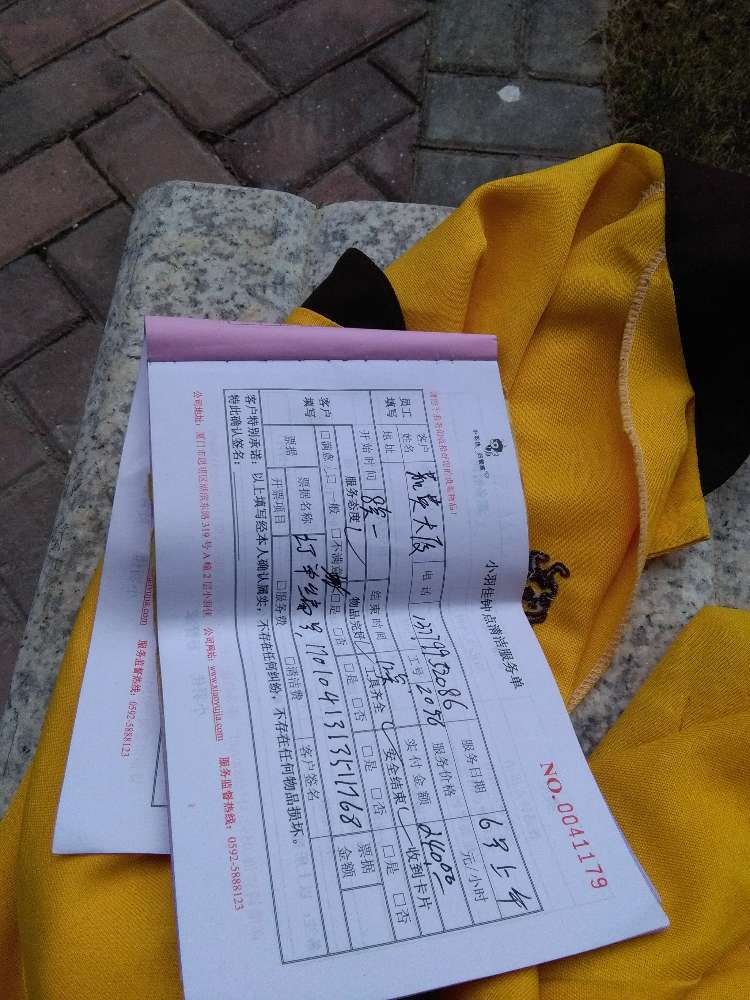 小羽佳钟点清洁服务单
NO.0041179
员工填写
客户姓名
电话 13799532086
服务日期 6号上午
地址
工号 2036
服务价格 元/小时
开始时间 8
结束时间
实付金额 240.00
客户填写
服务态度
物品完好
工具齐全
安全结束
收到卡片
□满意 □一般 □不满意
□是 □否
□是 □否
□是 □否
□是 □否
票据
票据名称 订单编号,17010413135111768
票据金额
开票项目 □服务费 □清洁费
客户签名
客户特别承诺:以上填写经本人确认属实,不存在任何纠纷,不存在任何物品损坏。
特此确认签名:
公司地址:厦门市思明区湖滨东路319号A幢2层小羽佳 公司网站:www.xiaoyujia.com 服务监督热线:0592-5888123
xiaoyujia.com 服务监督热线:0592-5888123